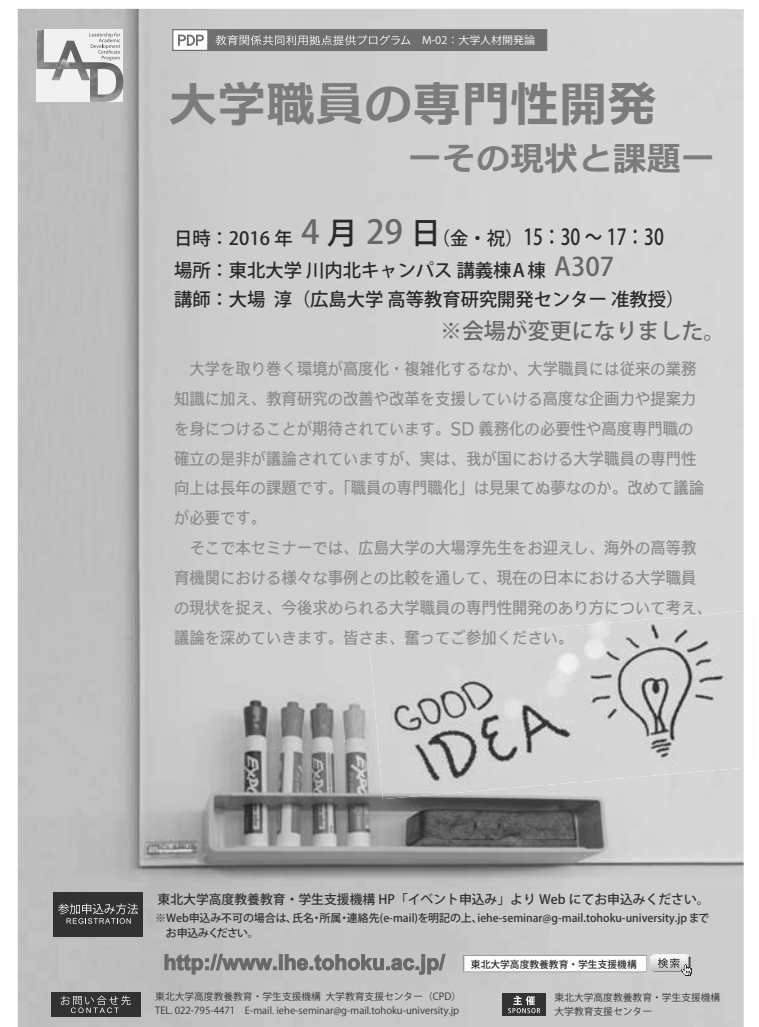 Leadership for
Academic
Development
Certificate
Program
LAD
PDP 教育関係共同利用拠点提供プログラム M-02：大学人材開発論
大学職員の専門性開発
ーその現状と課題ー
日時：2016年 4月29日(金・祝) 15：30～17：30
場所：東北大学 川内北キャンパス 講義棟A棟 A307
講師：大場 淳（広島大学 高等教育研究開発センター 准教授）
※会場が変更になりました。
大学を取り巻く環境が高度化・複雑化するなか、大学職員には従来の業務
知識に加え、教育研究の改善や改革を支援していける高度な企画力や提案力
を身につけることが期待されています。SD 義務化の必要性や高度専門職の
確立の是非が議論されていますが、実は、我が国における大学職員の専門性
向上は長年の課題です。「職員の専門職化」は見果てぬ夢なのか。改めて議論
が必要です。
そこで本セミナーでは、広島大学の大場淳先生をお迎えし、海外の高等教
育機関における様々な事例との比較を通して、現在の日本における大学職員
の現状を捉え、今後求められる大学職員の専門性開発のあり方について考え、
議論を深めていきます。皆さま、奮ってご参加ください。
GOOD
IDEA
EXPO
EXPO
EXPO
参加申込み方法
REGISTRATION
東北大学高度教養教育・学生支援機構 HP「イベント申込み」より Web にてお申込みください。
※Web申込み不可の場合は、氏名・所属・連絡先(e-mail)を明記の上、iehe-seminar@g-mail.tohoku-university.jp まで
お申込みください。
http://www.ihe.tohoku.ac.jp/ 東北大学高度教養教育・学生支援機構 検索
お問い合せ先
CONTACT
東北大学高度教養教育・学生支援機構 大学教育支援センター（CPD）
TEL. 022-795-4471 E-mail. iehe-seminar@g-mail.tohoku-university.jp
主催
SPONSOR
東北大学高度教養教育・学生支援機構
大学教育支援センター